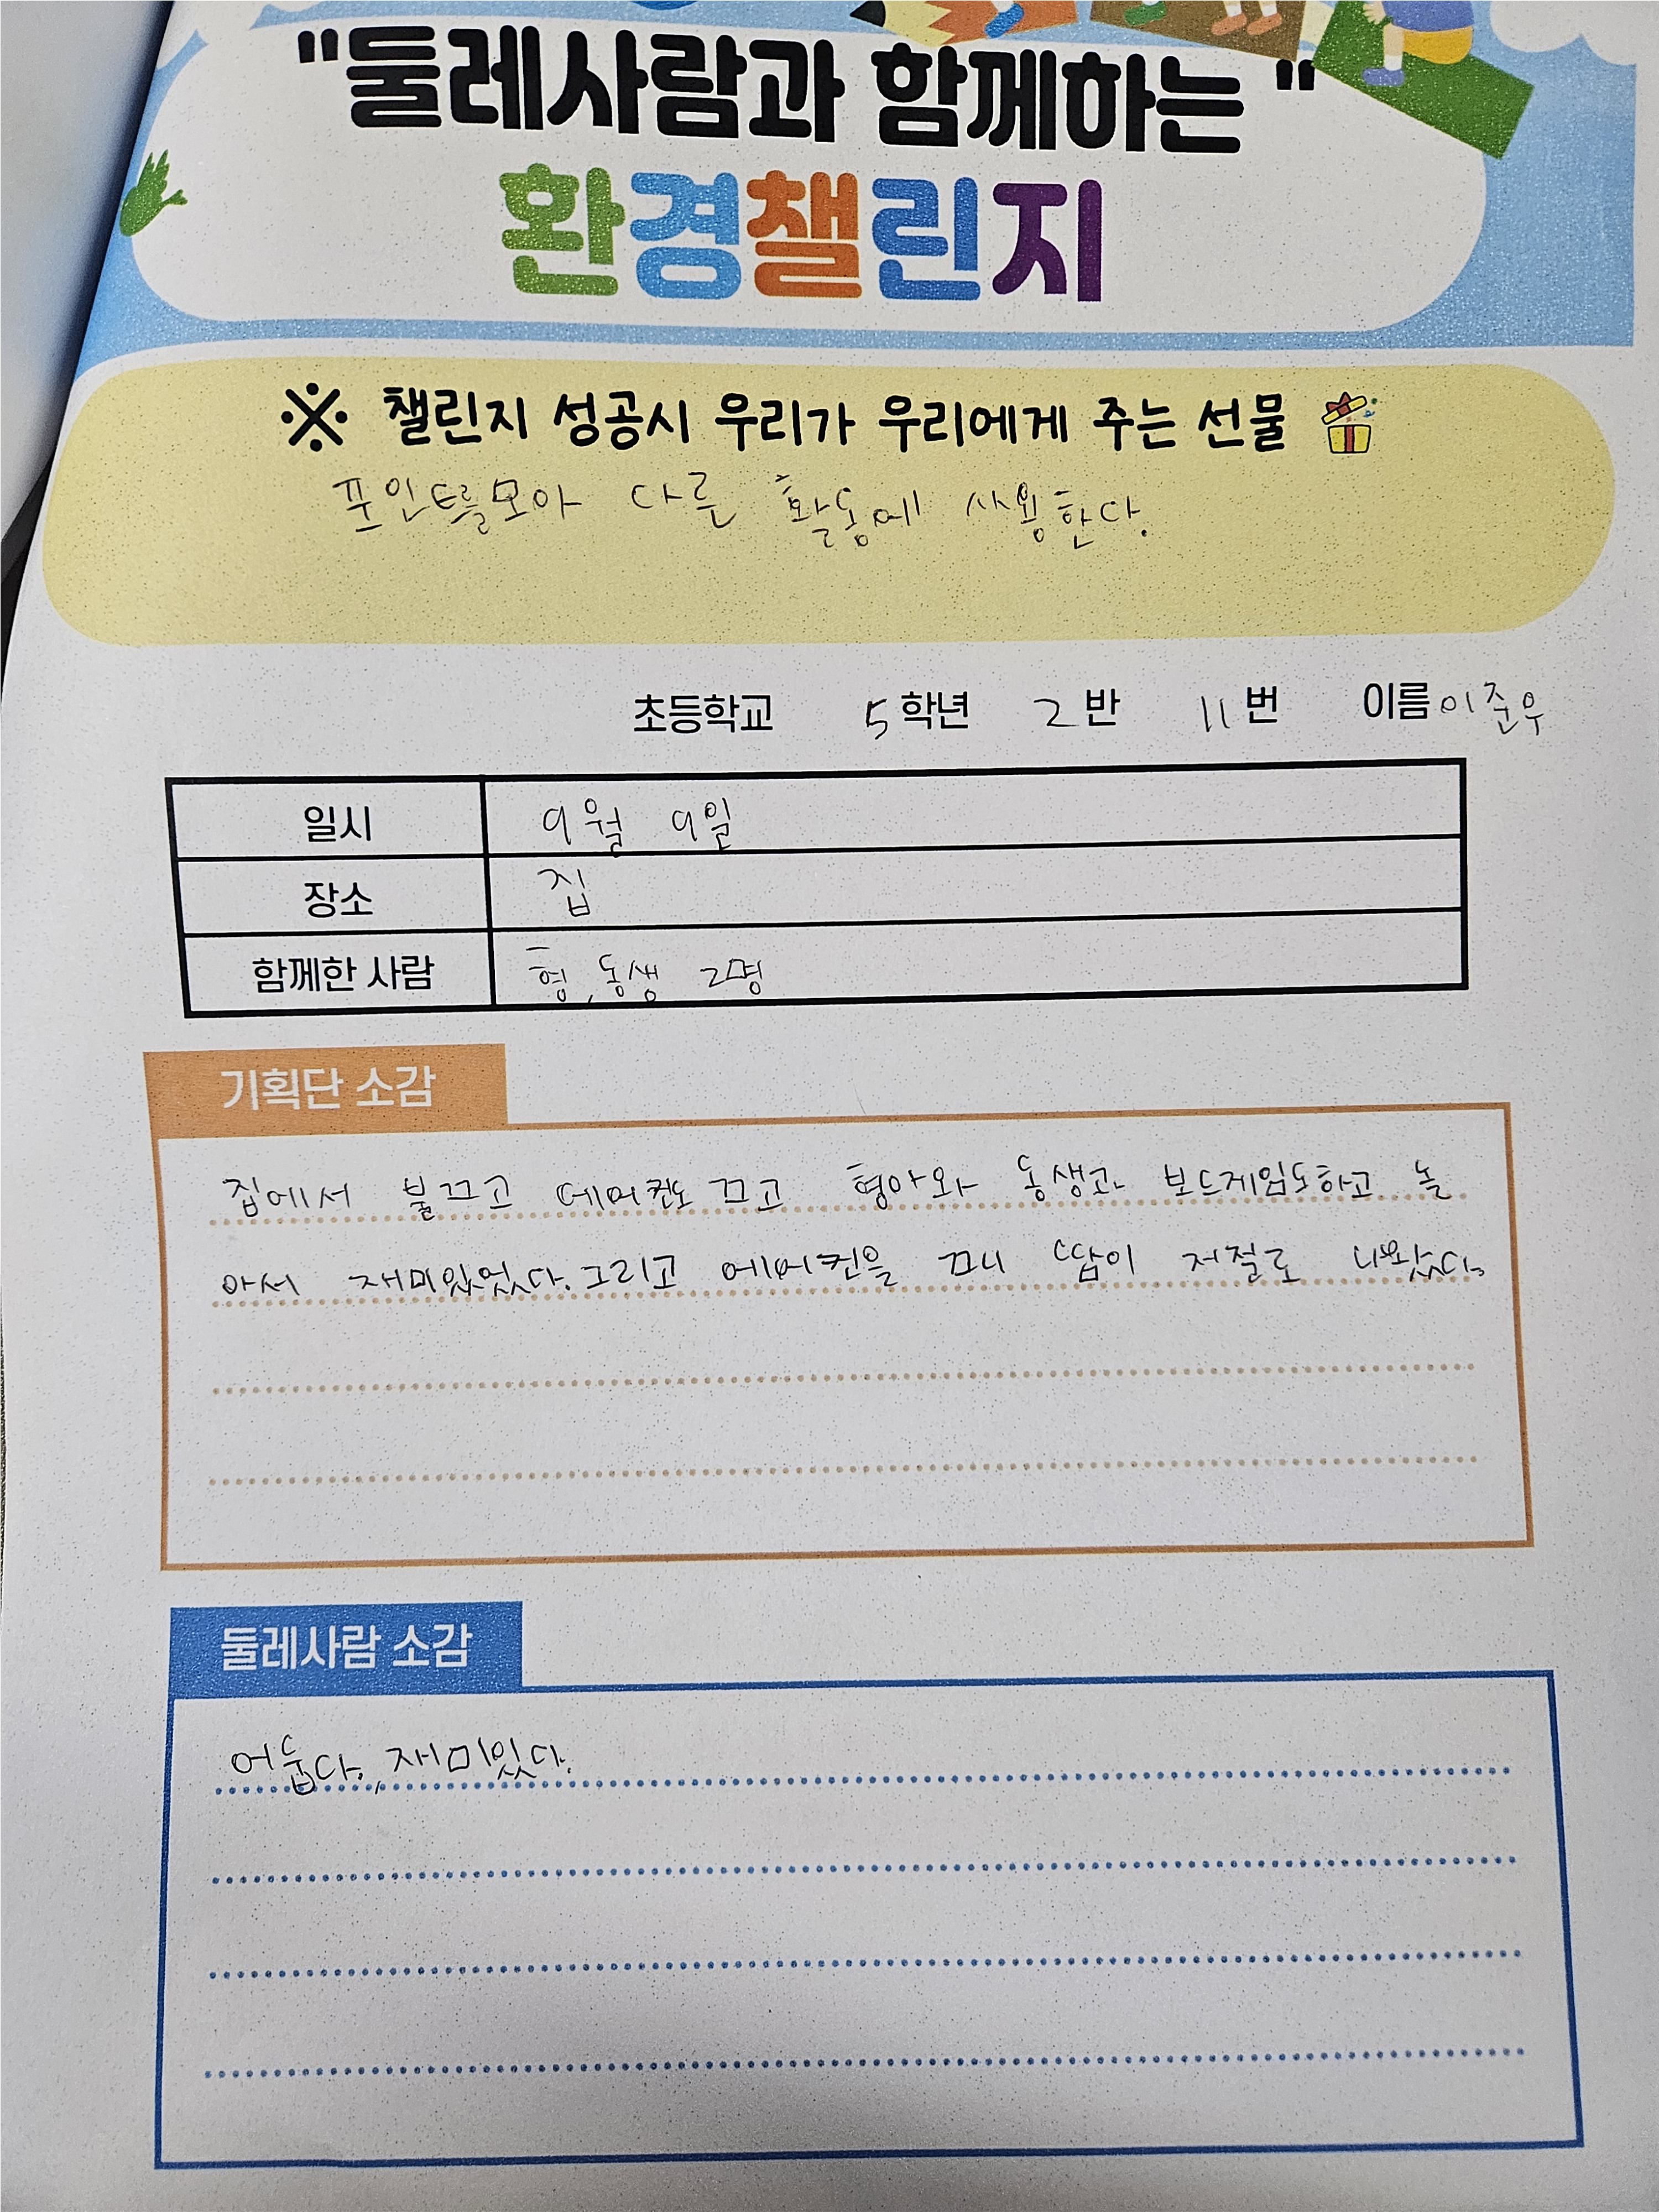 "둘레사람과 함께하는"
환경챌린지
※ 챌린지 성공시 우리가 우리에게 주는 선물
포인트를모아 다른 활동에 사용한다.
초등학교 5학년 2반 11번 이름 이준우
일시 9월 9일
장소 집
함께한 사람 형,동생 2명
기획단 소감
집에서 불끄고 에어컨도 끄고 형아와 동생과 보드게임도하고 놀
아서 재미있었다.그리고 에어컨을 끄니 땀이 저절로 나왔다.
둘레사람 소감
어둡다., 재미있다.